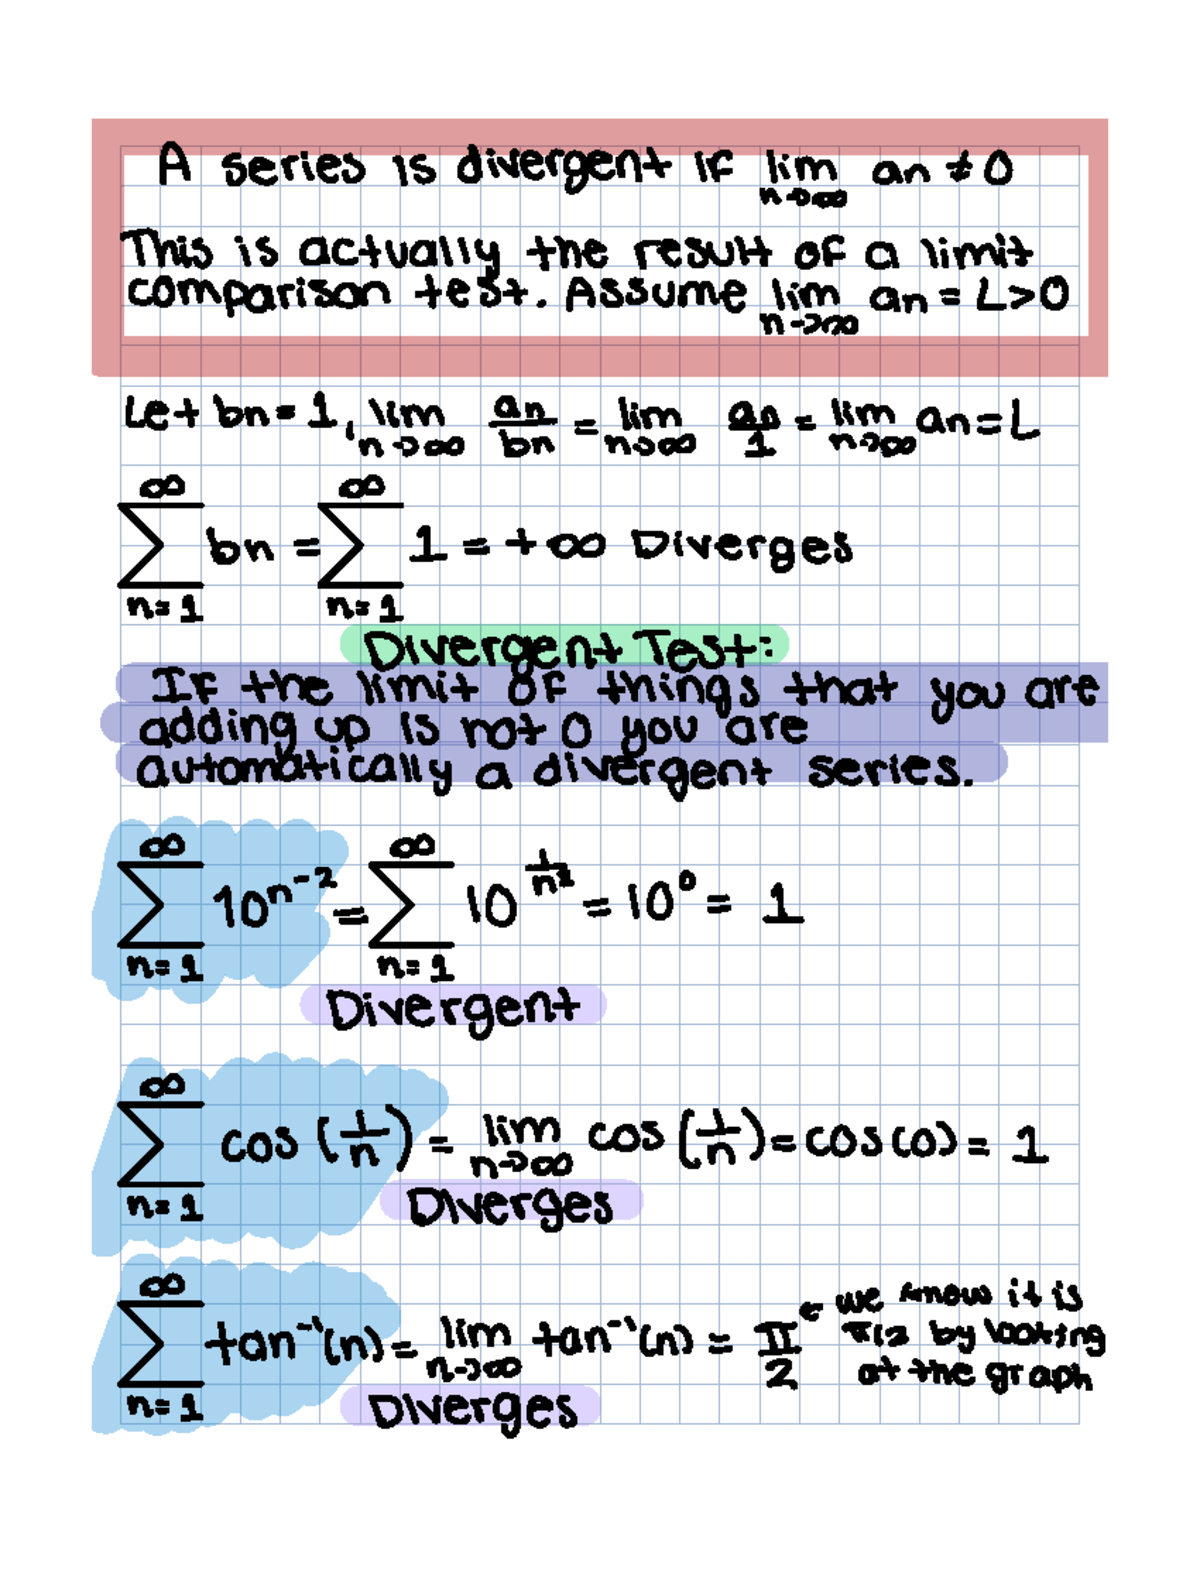 A series is divergent if lim n→∞ an ≠ 0
This is actually the result of a limit
comparison test. Assume lim n→∞ an = L>0
Let bn = 1, lim n→∞ an/bn = lim n→∞ an/1 = lim n→∞ an = L
∞ Σ n=1 bn = ∞ Σ n=1 1 = +∞ Diverges
Divergent Test:
If the limit of things that you are
adding up is not 0 you are
automatically a divergent series.
∞ Σ n=1 10^(n^-2) = ∞ Σ n=1 10^(1/n²) = 10⁰ = 1
Divergent
∞ Σ n=1 cos (1/n) = lim n→∞ cos (1/n) = cos(0) = 1
Diverges
∞ Σ n=1 tan⁻¹(n) = lim n→∞ tan⁻¹(n) = π/2 ← we know it is
π/2 by looking
at the graph
Diverges